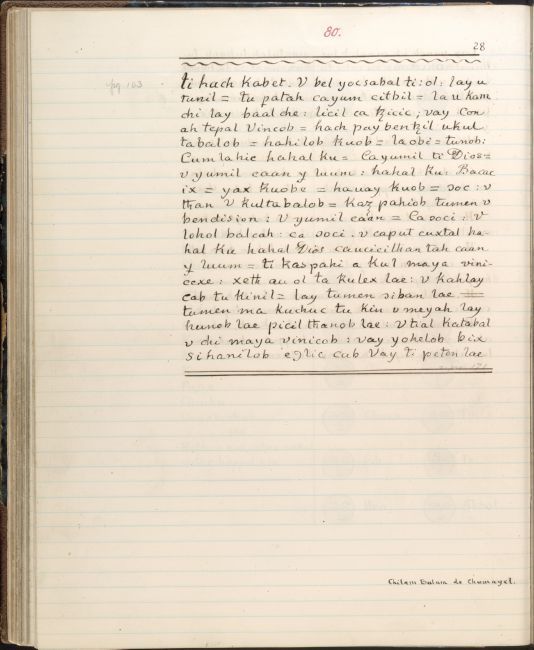 80.
28
pg. 103
ti hach Kabet. V bel yocsabal ti: ol: lay u
tunil = tu patah cayum citbil = la u kam
chi lay baalche: licil ca tzicic; vay Con
ah tepal Vincob = hach pay bentzil u kul
tabalob = hahilob kuob = la obi = tunob:
Cumlahic hahal ku = Cayumil ti Dios =
v yumil caan y luum: hahal ku: Bacac
ix = yax kuobe = hauay kuob = ɔoc: v
than V kultabalob = Kaz pahiob tumen v
bendision: V yumil caan = Ca ɔoci: V
lohol balcah: ca ɔoci. v caput cuxtal ha-
hal Ku hahal Dios caucicilthan tah caan
y luum = ti kaspahi a kul maya vini-
cexe: xeth au ol ta kulex lae: v kahlay
cab tu kinil = lay tumen ɔiban lae =
tumen ma kuchuc tu kin v meyah lay
hunob lae picil thanob lae: V tial katabal
v chi maya vinicob: vay yohelob bix
sihanilob eɔlic cab Vay ti peten lae
Chilam Balam de Chumayel.